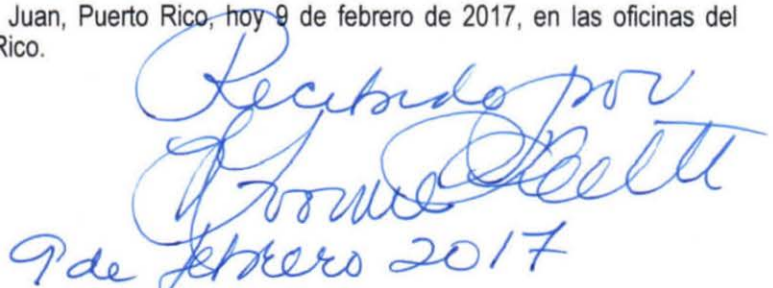 Juan, Puerto Rico, hoy 9 de febrero de 2017, en las oficinas del
Rico.
Recibido por
Ivonne
9 de febrero 2017